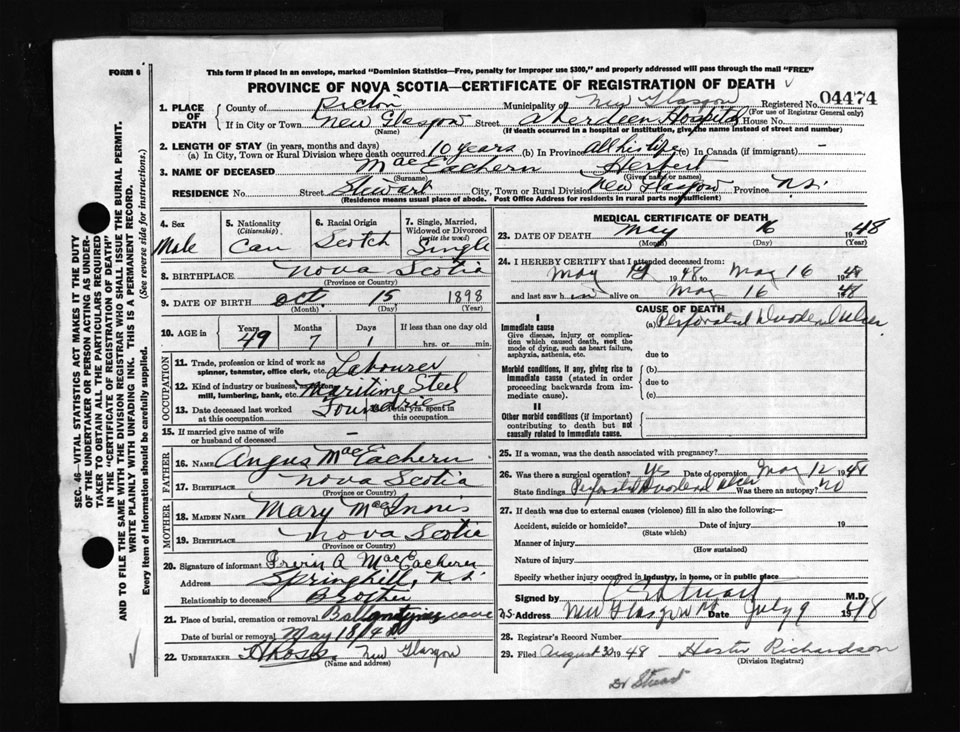 FORM 6
This form if placed in an envelope, marked "Dominion Statistics—Free, penalty for improper use $300," and properly addressed will pass through the mail "FREE"
PROVINCE OF NOVA SCOTIA—CERTIFICATE OF REGISTRATION OF DEATH
1. PLACE OF DEATH County of Pictou Municipality of New Glasgow Registered No. 04474
(For use of Registrar General only)
If in City or Town New Glasgow Street Aberdeen Hospital House No.
(Name) (If death occurred in a hospital or institution, give the name instead of street and number)
2. LENGTH OF STAY (in years, months and days)
(a) In City, Town or Rural Division where death occurred 10 years (b) In Province All his life (c) In Canada (if immigrant) —
3. NAME OF DECEASED MacEachern Herbert
(Surname) (Given name or names)
RESIDENCE No. Street Stewart City, Town or Rural Division New Glasgow Province N.S.
(Residence means usual place of abode. Post Office Address for residents in rural parts not sufficient)
4. Sex Male
5. Nationality (Citizenship) Can
6. Racial Origin Scotch
7. Single, Married, Widowed or Divorced (write the word) Single
8. BIRTHPLACE Nova Scotia
(Province or County)
9. DATE OF BIRTH Oct. 15 1898
(Month) (Day) (Year)
10. AGE in Years 49 Months 7 Days 1 If less than one day old hrs. or min.
OCCUPATION
11. Trade, profession or kind of work as spinner, teamster, office clerk, etc. Labourer
12. Kind of industry or business, as mill, lumbering, bank, etc. Maritime Steel
Foundries
13. Date deceased last worked at this occupation yrs. spent in this occupation
15. If married give name of wife or husband of deceased —
FATHER
16. NAME Angus MacEachern
17. BIRTHPLACE Nova Scotia
(Province or County)
MOTHER
18. MAIDEN NAME Mary MacInnis
19. BIRTHPLACE Nova Scotia
(Province or County)
20. Signature of informant A. MacEachern
Address Springhill, N.S.
Relationship to deceased Brother
21. Place of burial, cremation or removal Ballantynes cove
Date of burial or removal May 18/48
22. UNDERTAKER New Glasgow
(Name and address)
MEDICAL CERTIFICATE OF DEATH
23. DATE OF DEATH May 16 1948
(Month) (Day) (Year)
24. I HEREBY CERTIFY that I attended deceased from:
May 1948 to May 16 1948
and last saw him alive on May 16 1948
CAUSE OF DEATH
I
Immediate cause (a) Perforated Duodenal ulcer
Give disease, injury or complication which caused death, not the mode of dying, such as heart failure, asphyxia, asthenia, etc.
due to
Morbid conditions, if any, giving rise to immediate cause (stated in order proceeding backwards from immediate cause).
(b)
due to
(c)
II
Other morbid conditions (if important) contributing to death but not causally related to immediate cause.
25. If a woman, was the death associated with pregnancy?
26. Was there a surgical operation? Yes Date of operation May 12 1948
State findings Perforated Duodenal ulcer Was there an autopsy? No
27. If death was due to external causes (violence) fill in also the following:—
Accident, suicide or homicide? Date of injury 19
(State which)
Manner of injury
(How sustained)
Nature of injury
Specify whether injury occurred in industry, in home, or in public place
Signed by M.D.
Address New Glasgow Date July 9 1948
28. Registrar's Record Number
29. Filed August 30 1948 Hester Richardson
(Division Registrar)
Dr Stuart
SEC. 46—VITAL STATISTICS ACT MAKES IT THE DUTY
OF THE UNDERTAKER OR PERSON ACTING AS UNDER-
TAKER TO OBTAIN ALL THE PARTICULARS REQUIRED
IN THE "CERTIFICATE OF REGISTRATION OF DEATH"
AND TO FILE THE SAME WITH THE DIVISION REGISTRAR WHO SHALL ISSUE THE BURIAL PERMIT.
WRITE PLAINLY WITH UNFADING INK. THIS IS A PERMANENT RECORD.
Every item of information should be carefully supplied. (See reverse side for instructions.)